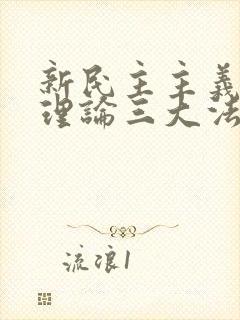 新民主主義
理論三大法
流浪1